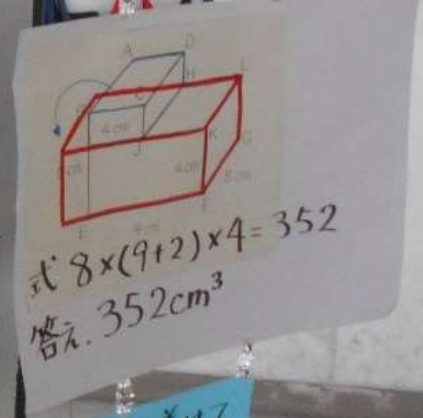 A D
H L
C
4cm
J K
4cm G
cm 8cm
E 9cm F
式 8×(9+2)×4=352
答え. 352cm³